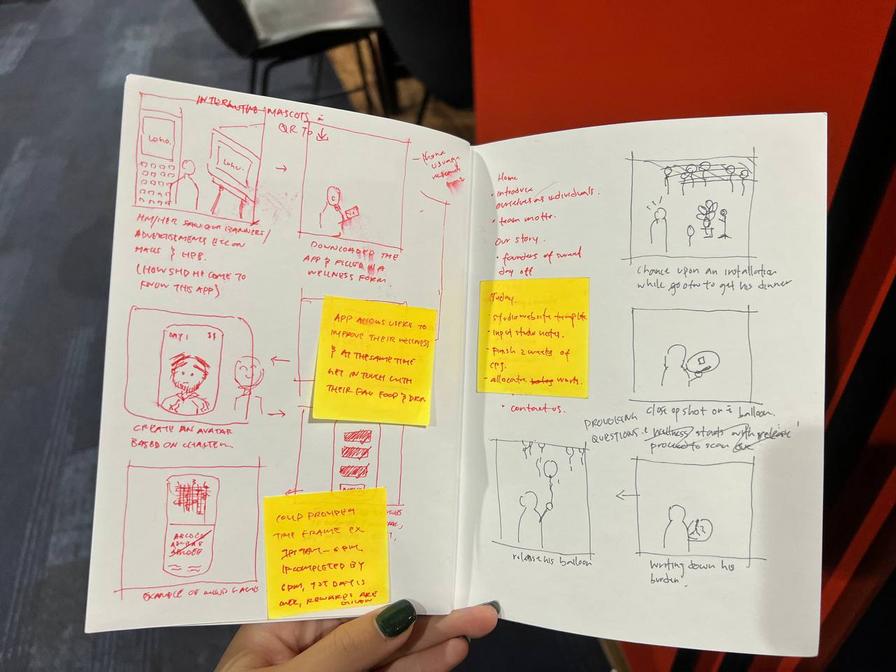 INTERACTIVE MASCOTS
QR TO
Loho.
Loho.
HIM/HER SAW OUR BANNERS/
ADVERTISEMENTS ECC ON
MALLS & HPB.
(HOW SHD HE COME TO
KNOW THIS APP)
DOWNLOADED THE
APP & FILLED IN A
WELLNESS FORM.
usage
DAY 1 $$
CREATE AN AVATAR
BASED ON
APP ALLOWS USERS TO
IMPROVE THEIR WELLNESS
& AT THE SAME TIME
GET IN TOUCH WITH
THEIR FAV FOOD &
EXAMPLE OF MINI GAMES
COULD PROVIDED
TIME FRAME EX
6PM,
IF COMPLETED BY
6PM, 1ST DAY IS
OVER, REWARDS ARE
GIVEN
Home
• introduce
ourselves as individuals.
• team motto.
Our story.
• founders of
day off
Today
• studio website template
• input studio notes.
• finish 2 weeks of
• allocate work.
• contact us.
Chance upon an installation
while go out to get his dinner
close up shot on a balloon.
PROVOKING
QUESTIONS: wellness starts with release!
proceed to scan
release his balloon
writing down his
burden.